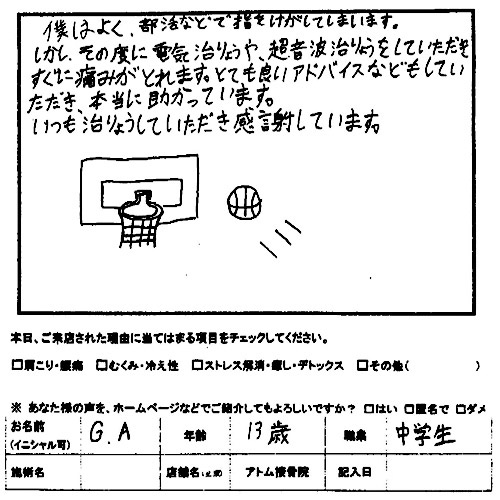 僕はよく、部活などで指をけがしてしまいます。
しかし、その度に電気治りょうや、超音波治りょうをしていただき
すぐに痛みがとれます。とても良いアドバイスなどもしてい
ただき、本当に助かっています。
いつも治りょうしていただき感謝しています。
本日、ご来店された理由に当てはまる項目をチェックしてください。
□肩こり・腰痛 □むくみ・冷え性 □ストレス解消・癒し・デトックス □その他( )
※ あなた様の声を、ホームページなどでご紹介してもよろしいですか？ □はい □匿名で □ダメ
お名前 (イニシャル可) G.A 年齢 13歳 職業 中学生
施術名 店舗名 アトム接骨院 記入日